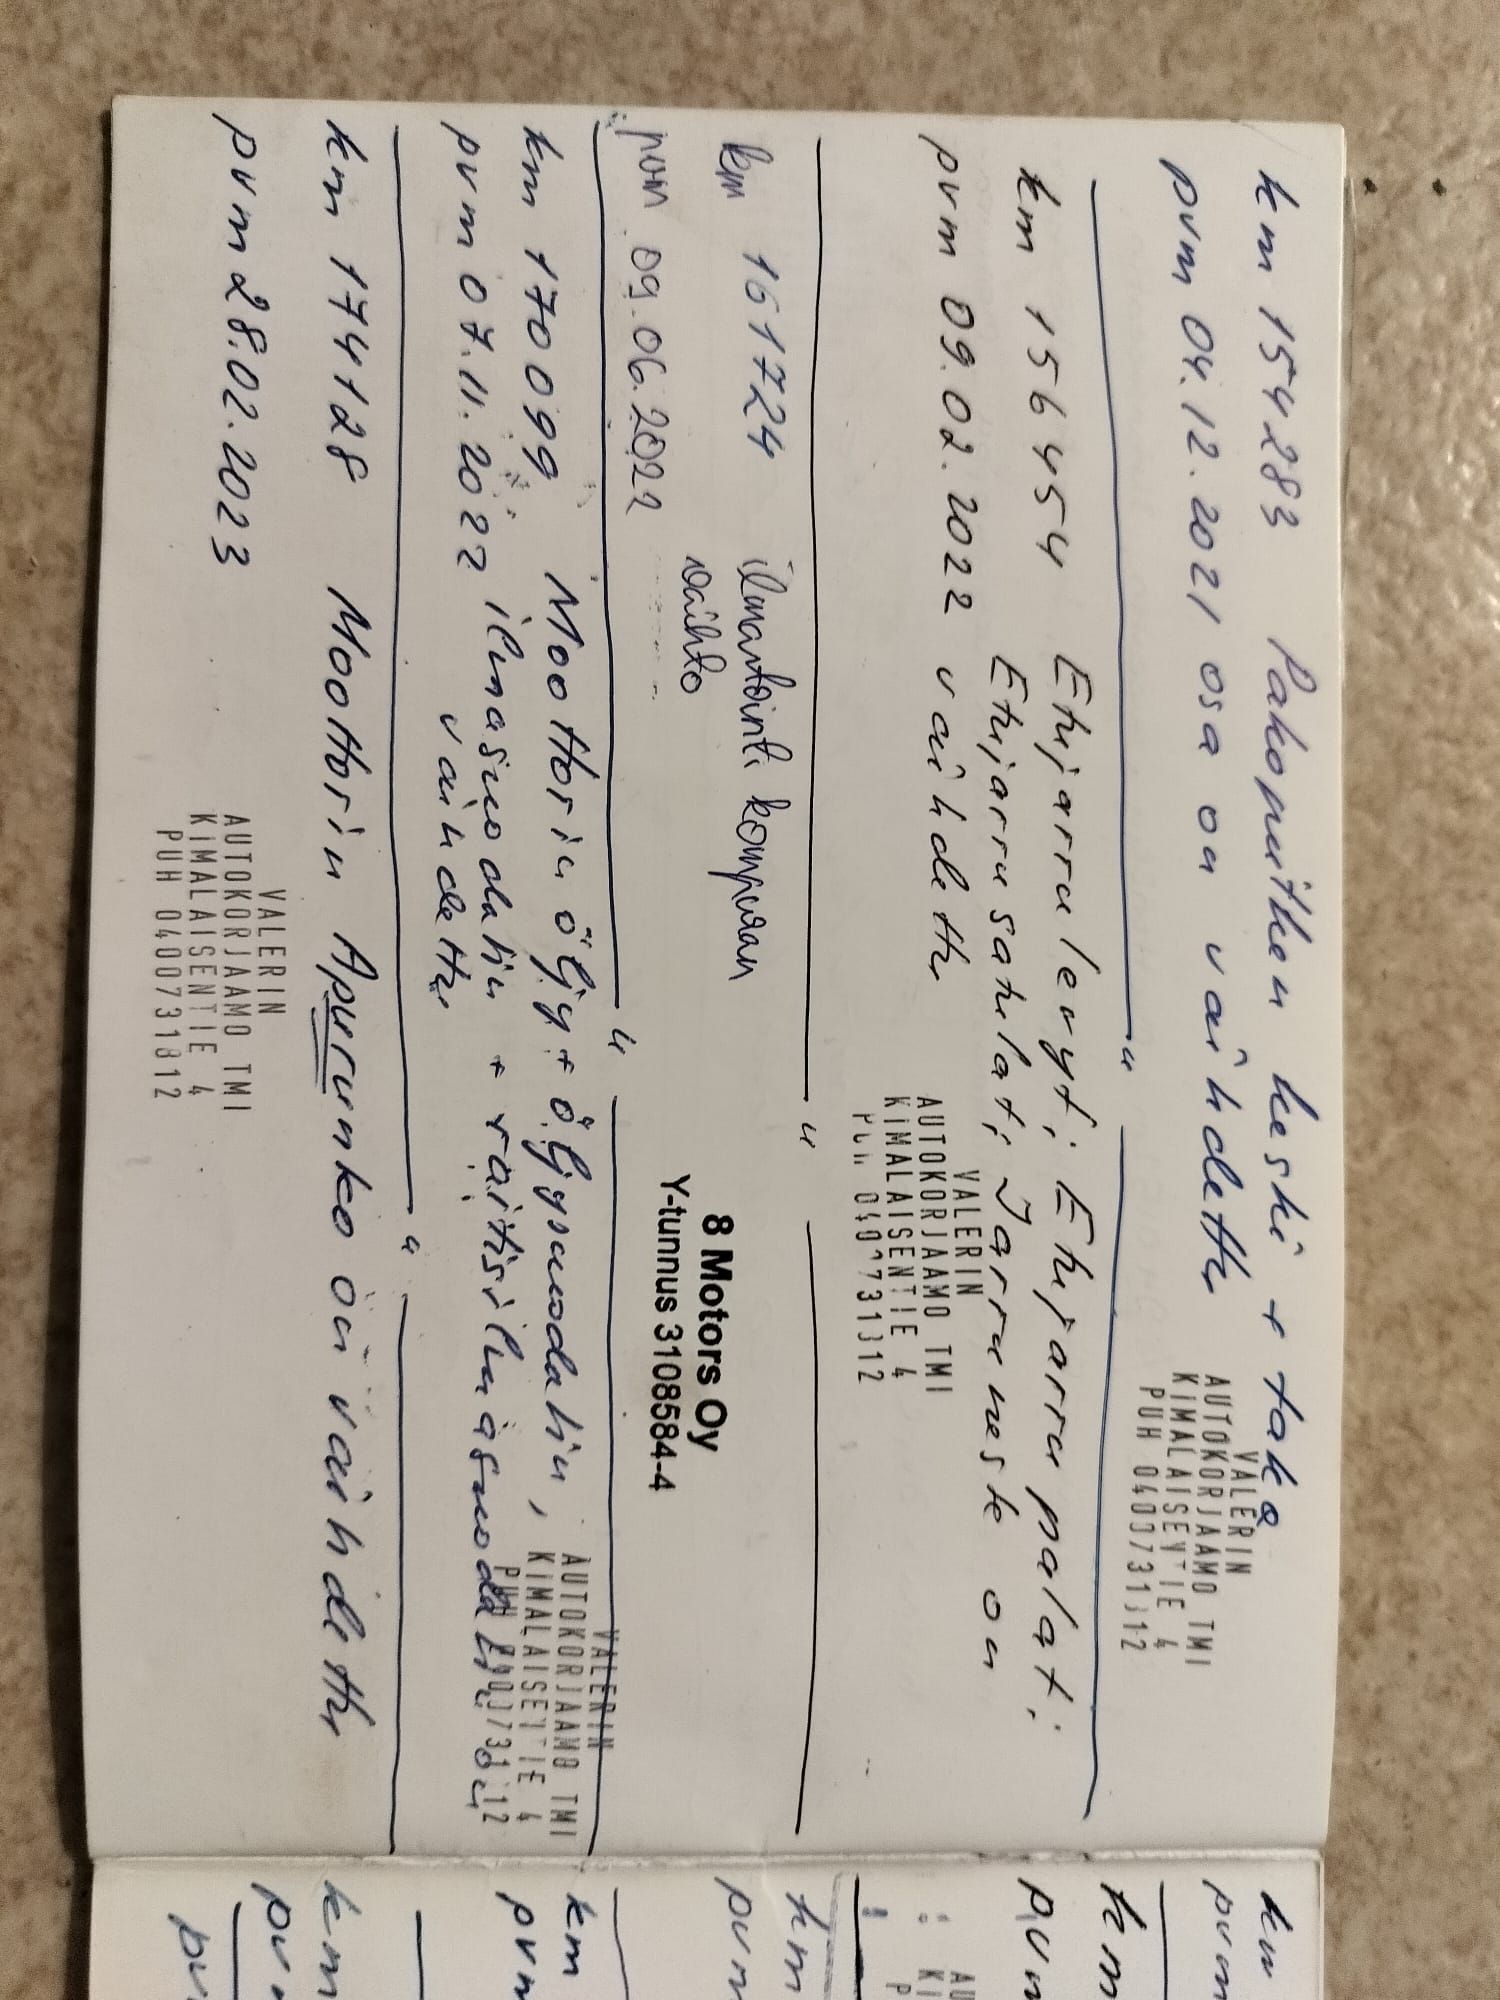 km 154283 Pakoputken keski + taka
pvm 04.12.2021 osa on vaihdettu
VALERIN
AUTOKORJAAMO TMI
KIMALAISENTIE 4
PUH 0400731312
"
km 156454 Etujarrulevyt; Etujarrupalat;
Etujarrusatulat; Jarruneste on
pvm 09.02.2022 vaihdettu
VALERIN
AUTOKORJAAMO TMI
KIMALAISENTIE 4
PUH 0400731312
"
km 161724 ilmastointi kompuran
vaihto
pvm 09.06.2022
8 Motors Oy
Y-tunnus 3108584-4
"
km 170099 Moottorin öljy + öljysuodatin,
pvm 07.11.2022 ilmasuodatin + raitisilmasuodatin on
vaihdettu
VALERIN
AUTOKORJAAMO TMI
KIMALAISENTIE 4
PUH 0400731312
"
km 174128 Moottorin Apurunko on vaihdettu
pvm 28.02.2023
VALERIN
AUTOKORJAAMO TMI
KIMALAISENTIE 4
PUH 0400731312
km
pvm
km
pvm
km
pvm
km
pvm
km
pvm